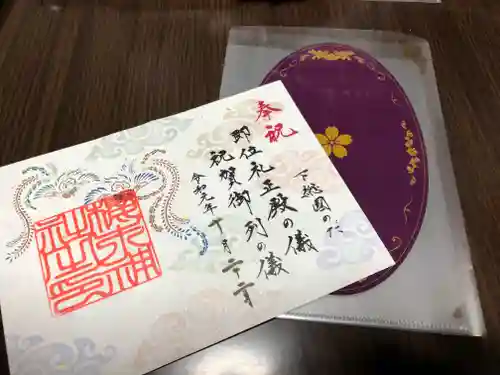 下総國のだ
奉祝
即位礼正殿の儀
祝賀御列の儀
令和元年十月二十二
櫻木神社之印